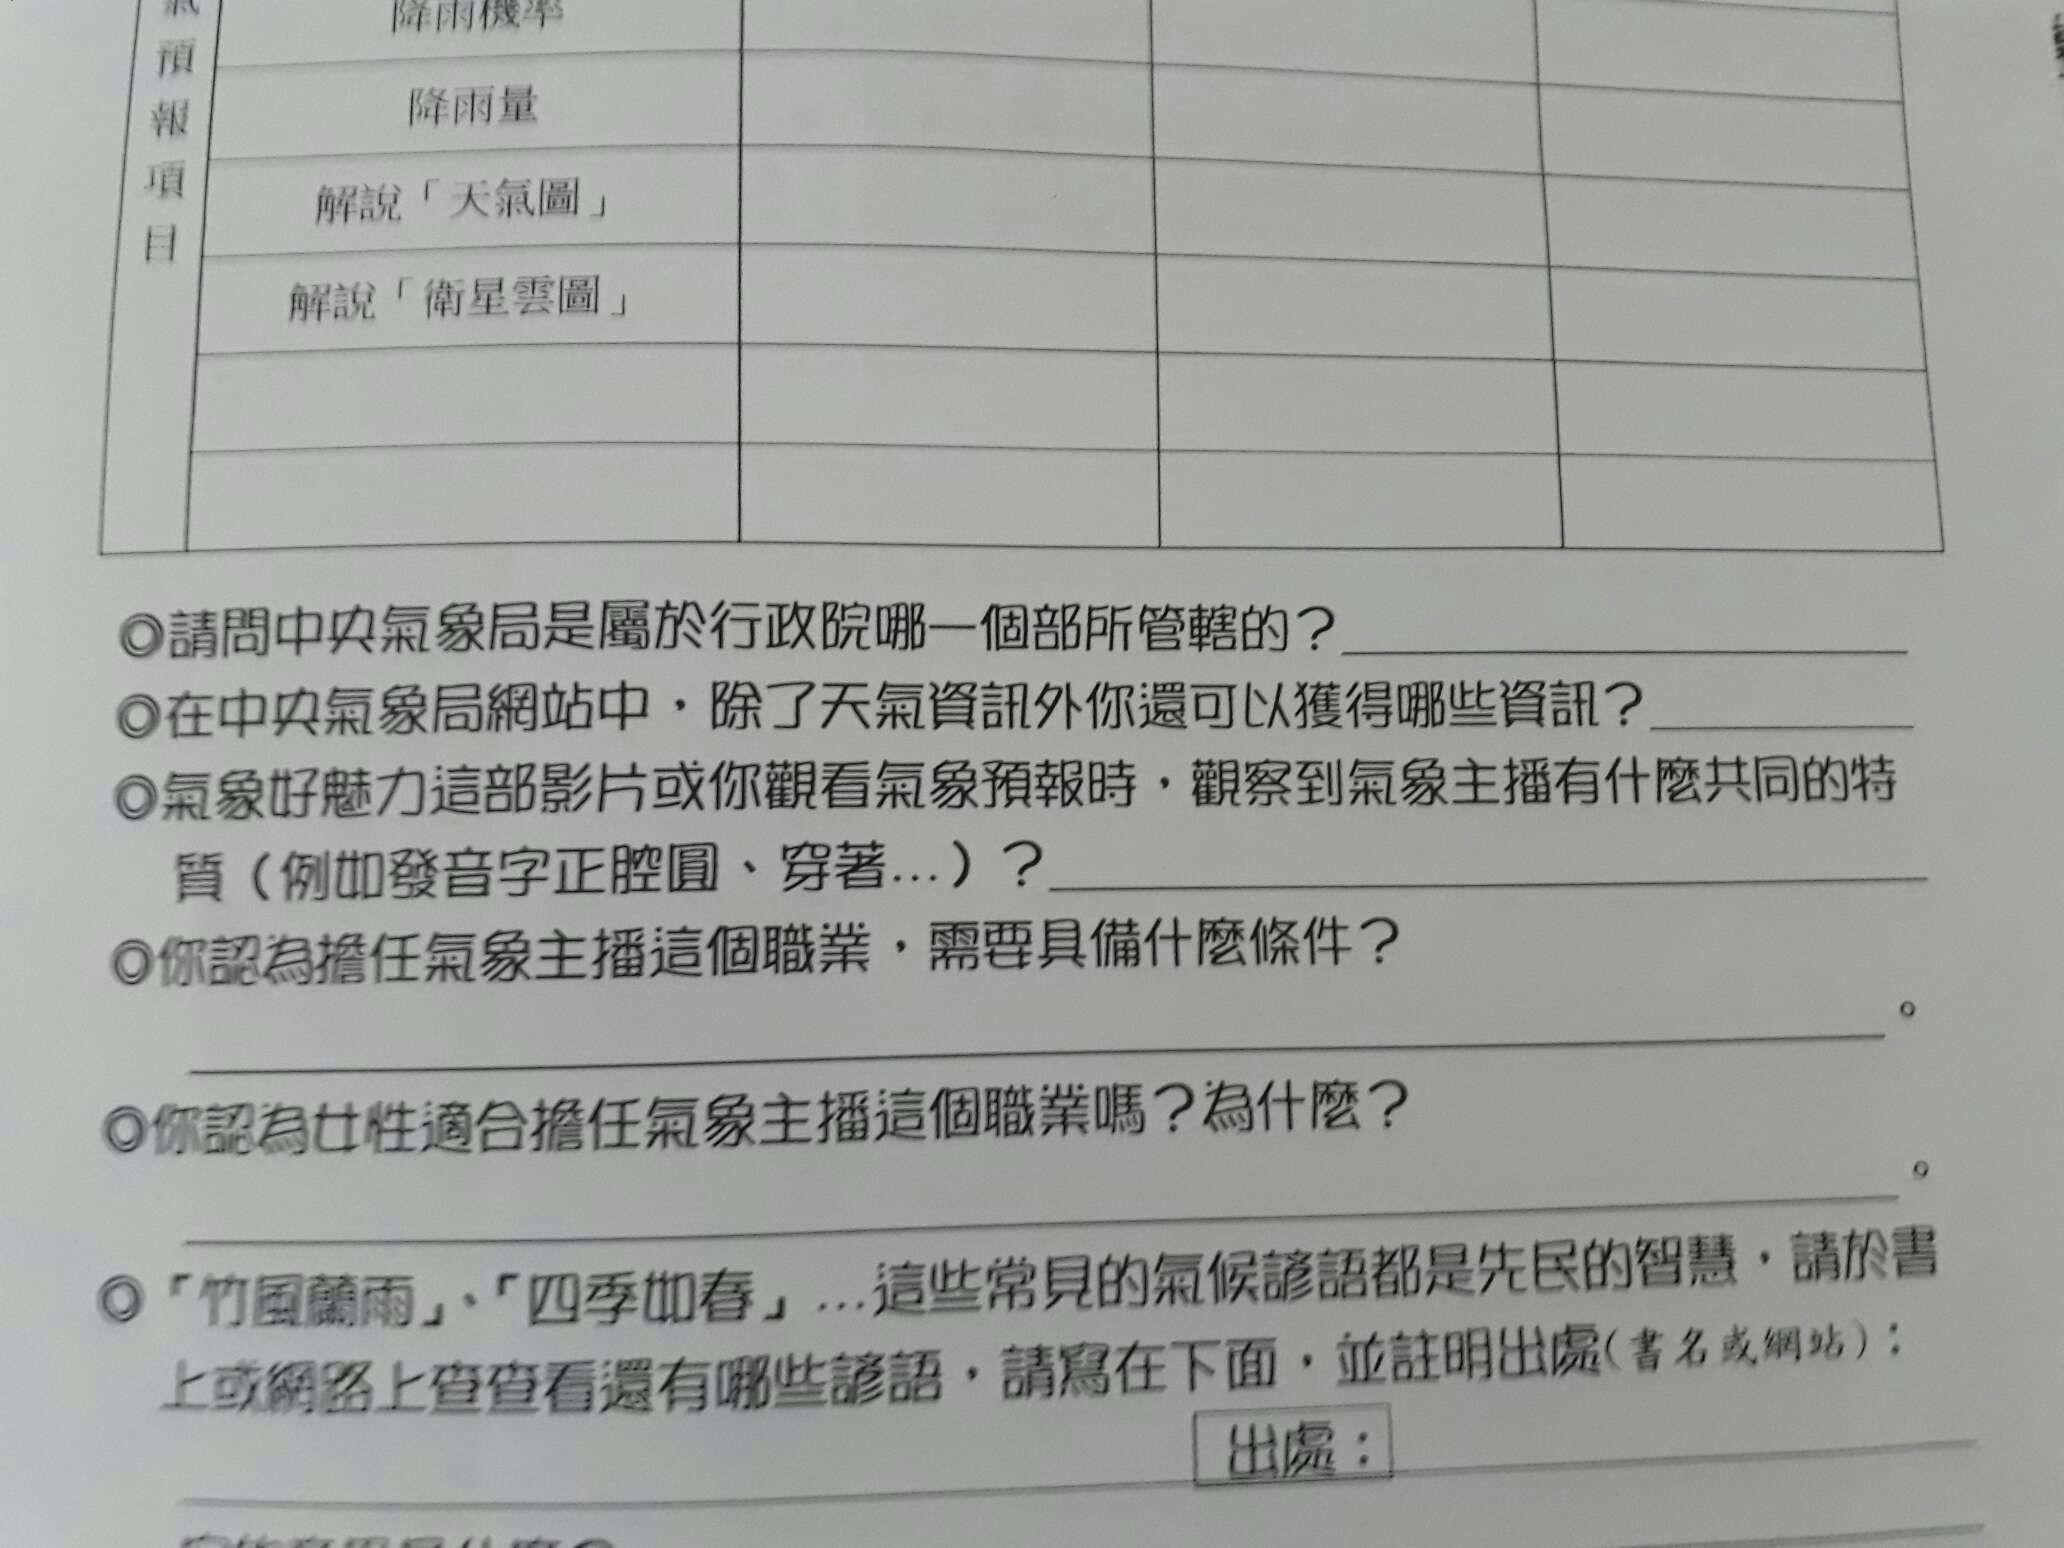 氣預報項目
降雨機率
降雨量
解說「天氣圖」
解說「衛星雲圖」
◎請問中央氣象局是屬於行政院哪一個部所管轄的？
◎在中央氣象局網站中，除了天氣資訊外你還可以獲得哪些資訊？
◎氣象好魅力這部影片或你觀看氣象預報時，觀察到氣象主播有什麼共同的特
質（例如發音字正腔圓、穿著…）？
◎你認為擔任氣象主播這個職業，需要具備什麼條件？
。
◎你認為女性適合擔任氣象主播這個職業嗎？為什麼？
。
◎「竹風蘭雨」、「四季如春」…這些常見的氣候諺語都是先民的智慧，請於書
上或網路上查查看還有哪些諺語，請寫在下面，並註明出處(書名或網站)：
出處：